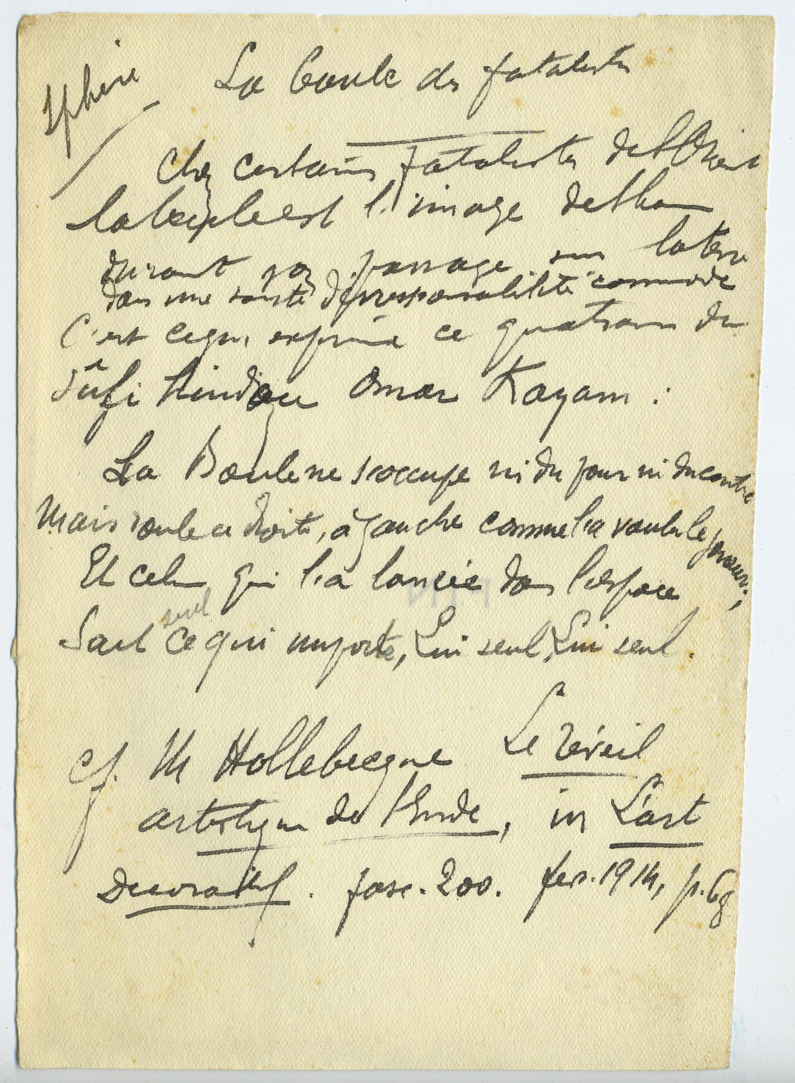 Sphère
La boule des fatalistes
Chez certains fatalistes de l'Orient
la boule est l'image de l'homme
durant son passage sur la terre
dans une sorte d'irresponsabilité commode
C'est ce qui exprime ce quatrain du
Sûfi hindou Omar Kayam :
La Boule ne s'occupe ni du pour ni du contre
Mais roule à droite, à gauche comme l'a voulu le joueur ;
Et celui qui l'a lancée dans l'espace
seul
Sait ce qui importe, Lui seul, Lui seul.
cf. M Hollebecque Le réveil
artistique de l'Inde, in L'art
Décoratif. fasc. 200. fev. 1914, p. 68